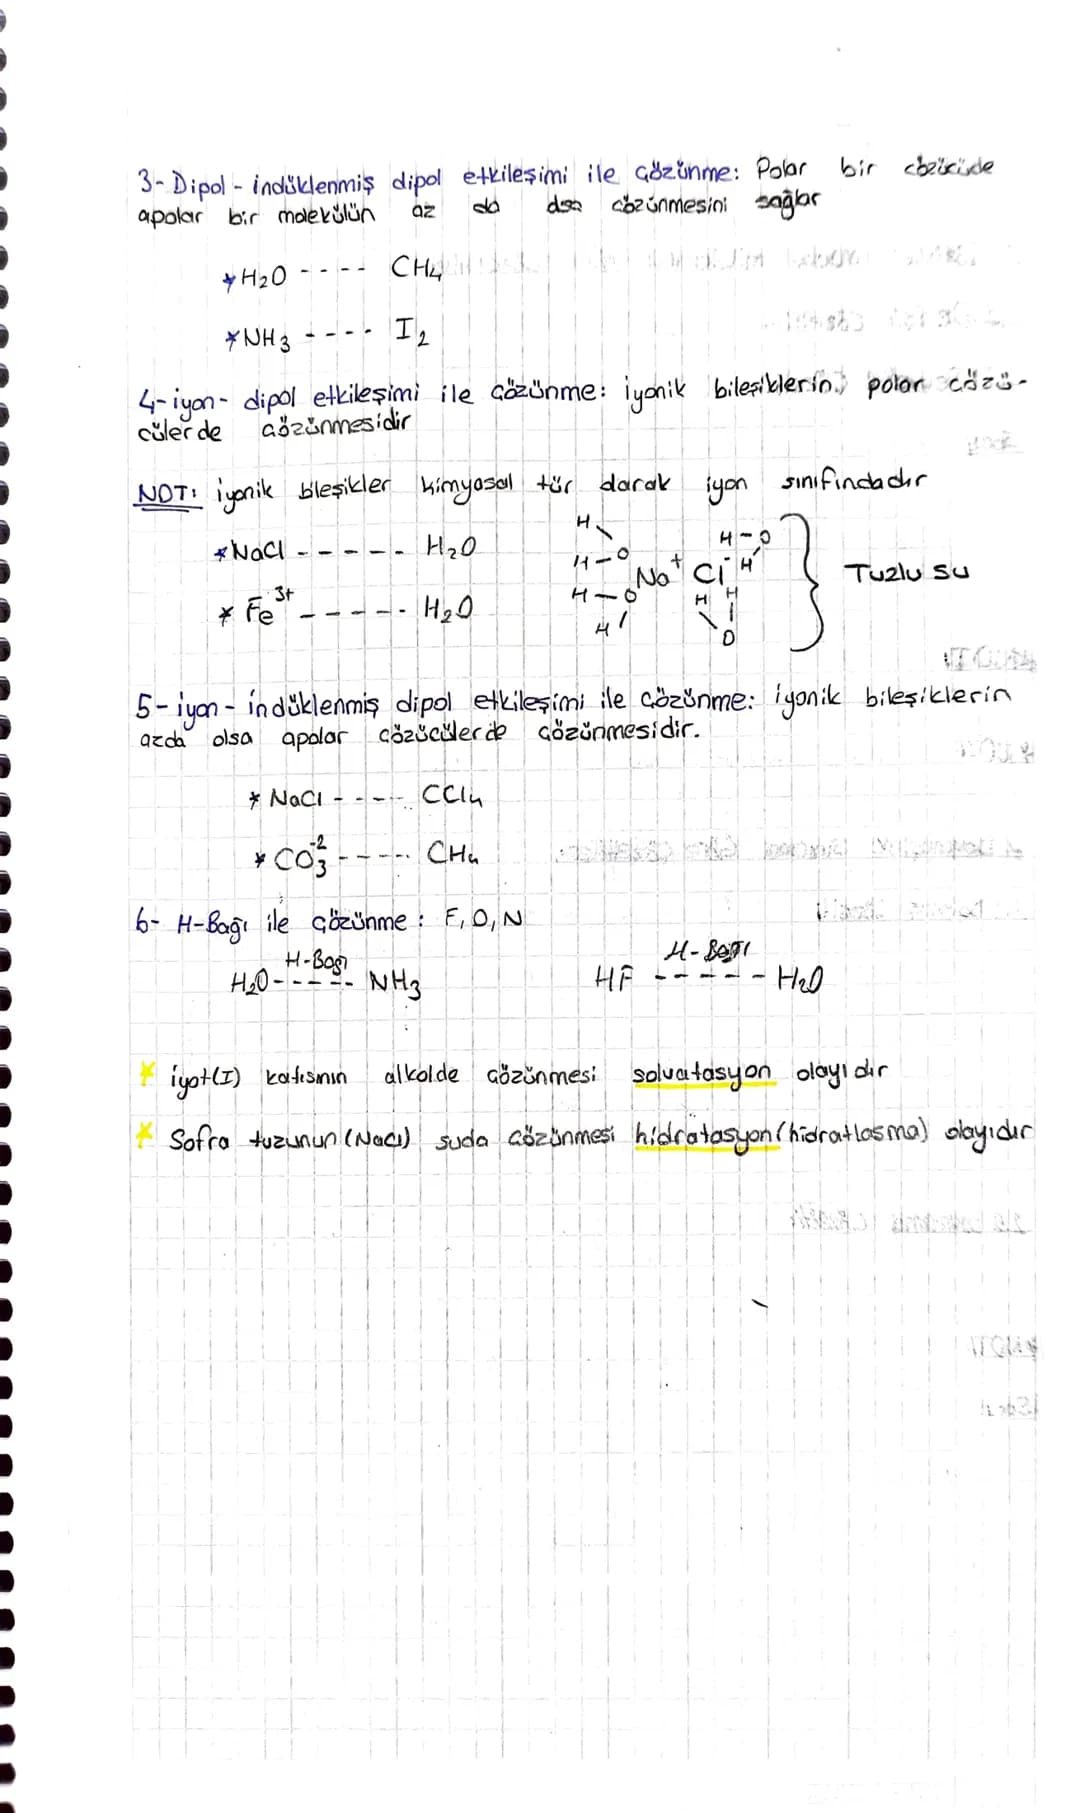 3- Dipol - indüklenmiş dipol etkileşimi ile çözünme: Polar bir çözücüde
apolar bir molekülün az da olsa çözünmesini sağlar
* H2O ---- CH4
* NH3 ---- I2
4- iyon - dipol etkileşimi ile çözünme: iyonik bileşiklerin polar çözü-
cüler de çözünmesidir
NOT: iyonik bileşikler kimyasal tür olarak iyon sınıfındadır
* NaCl ----- H2O
* Fe3+ ----- H2O
H
H-O H-O
Na+ Cl- H
H-O H H
H O
Tuzlu su
5- iyon - indüklenmiş dipol etkileşimi ile çözünme: iyonik bileşiklerin
azda olsa apolar çözücüler de çözünmesidir.
* NaCl ---- CCl4
* CO3-2 ----- CH4
6- H-Bağı ile çözünme: F, O, N
H-Bağı H-Bağı
H2O ----- NH3 HF ----- H2O
* iyot(I) katısının alkolde çözünmesi solvatasyon olayıdır
* Sofra tuzunun (NaCl) suda çözünmesi hidratasyon (hidratlasma) olayıdır